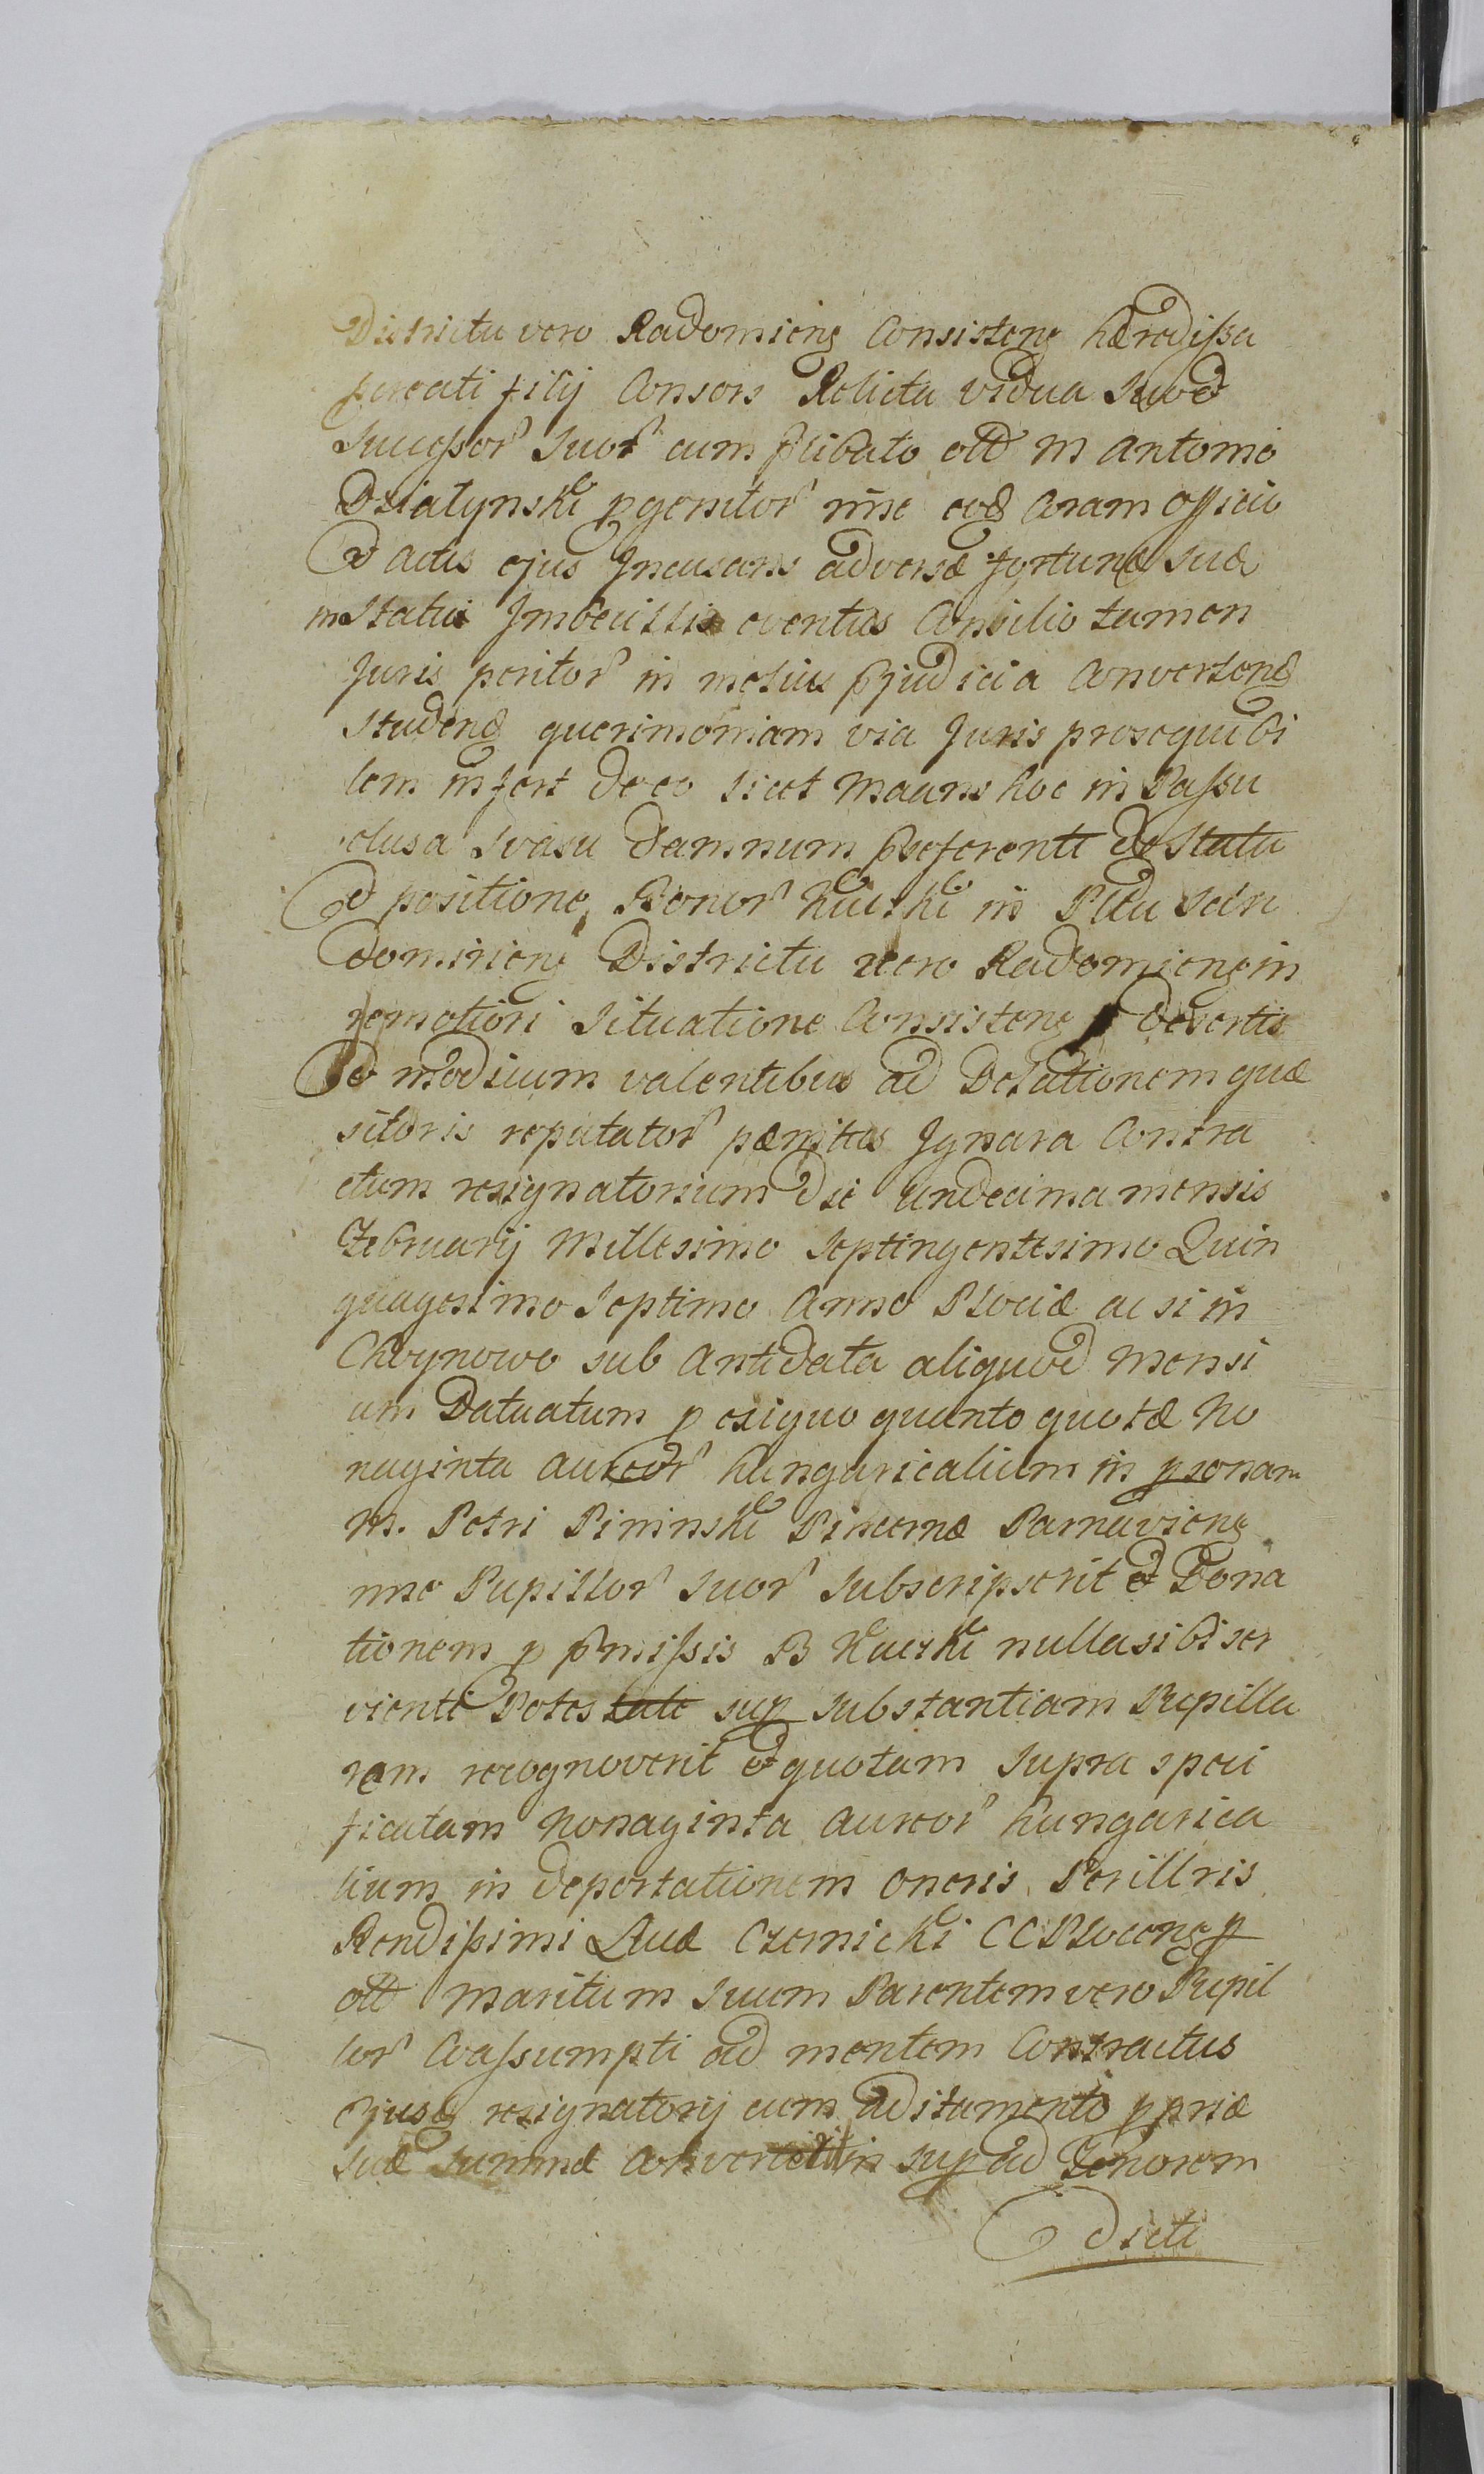 Districtu vero Radomieng Consisteng hæredissa
procreati filij Consors Relicta vidua suo et
successor suor cum plibato olt M Antonio
Działynski pgenitor nne eog Coram officio
et actis ejus Incusans adversæ fortunæ suæ
in statui Imbecillis eventus Consilio tamen
Juris peritor in melius pjudicia Converteng
studeng querimoniam via Juris prosequibi
lem infert de eo sicut Maans hoc in Passu
elusa svasu damnum pseferenti de statu
et positione Bonor Kucski in Pltu San
domirieng Districtu vero Radomieng in
remotiori situatione Consisteng desertis
et modicum valentibus ad Delationem quæ
sitoris reputator pænitus Ignara Contra
ctum resignatorium die undecima mensis
Februarij Millesimo septingentesimo Quin
quagesimo septimo Anno Plociæ ac si in
Choynowo sub antidata aliquod Mensi
um Datuatum p exiguo quanto quotæ No
naginta aureor hungaricalium in psonam
M. Petri Pininski Pincernæ Parnavieng
nne Pupillor suor subscripserit et Dona
tionem p pmissis B Kucski nulla sibi ser
vienti Potestate sup substantiam Pupilla
rem recognoverit et quotam supra speci
ficatam Nonaginta aureor hungarica
lium in deportationem oneris Perillris
Rendissimi Lucæ Czernicki CC Ploceng p
olt Maritum suum Parentem vero Pupil
lor Coassumpti ad mentem Contractus
ejusq resignatorij cum additamento ppriæ
suæ summæ Converterit in sup ad Tenorem
Dicti